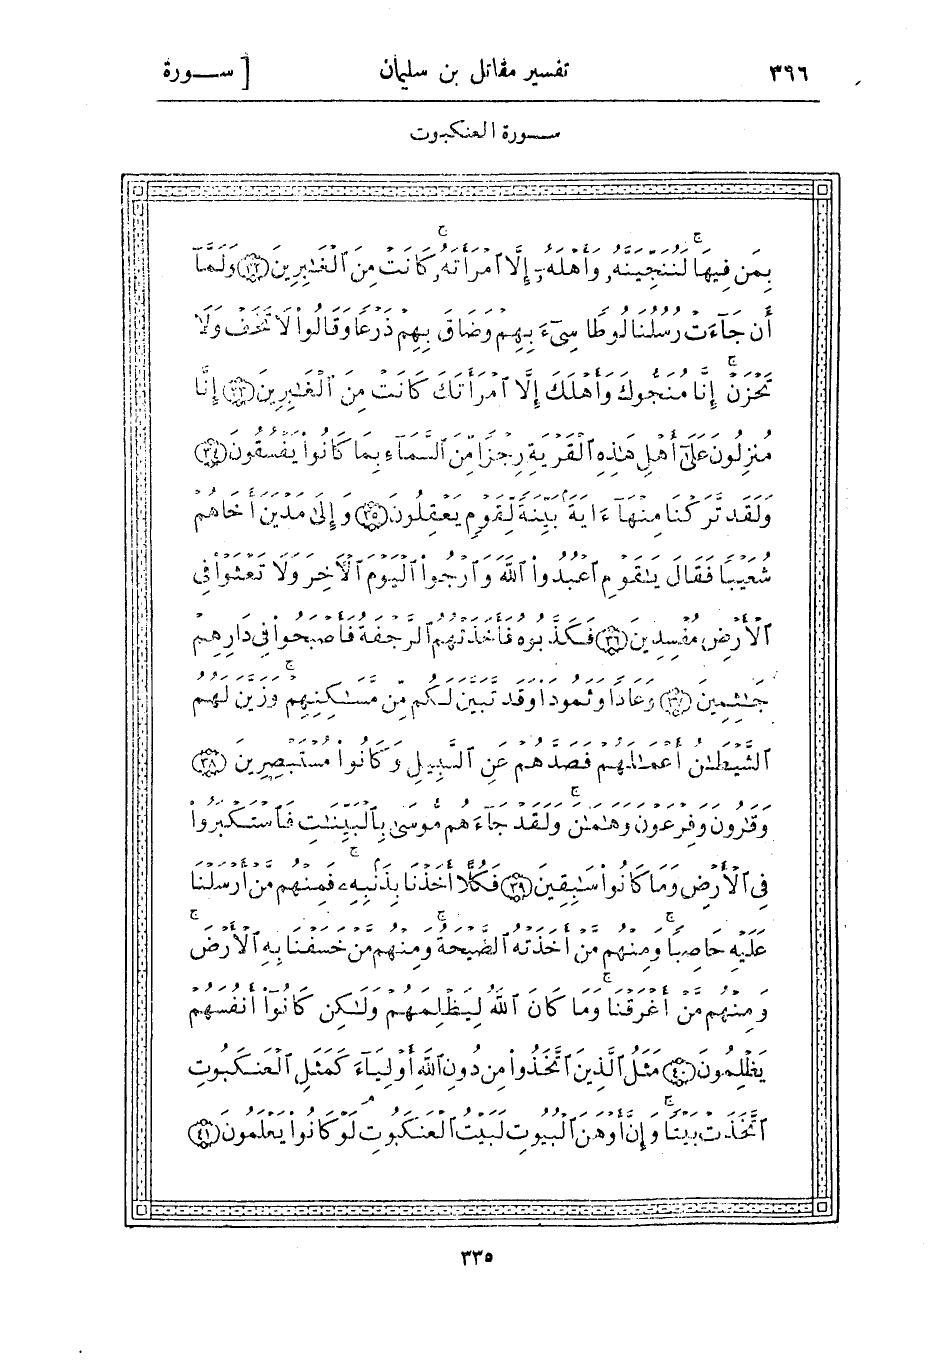 ٣٩٦ تفسير مقاتل بن سليمان [ ســورة
ســورة العنكبوت
بِمَن فِيهَاۖ لَنُنَجِّيَنَّهُۥ وَأَهْلَهُۥٓ إِلَّا ٱمْرَأَتَهُۥ كَانَتْ مِنَ ٱلْغَٰبِرِينَ ٣٢ وَلَمَّآ
أَن جَآءَتْ رُسُلُنَا لُوطًا سِىٓءَ بِهِمْ وَضَاقَ بِهِمْ ذَرْعًا وَقَالُوا۟ لَا تَخَفْ وَلَا
تَحْزَنْۖ إِنَّا مُنَجُّوكَ وَأَهْلَكَ إِلَّا ٱمْرَأَتَكَ كَانَتْ مِنَ ٱلْغَٰبِرِينَ ٣٣ إِنَّا
مُنزِلُونَ عَلَىٰٓ أَهْلِ هَٰذِهِ ٱلْقَرْيَةِ رِجْزًا مِّنَ ٱلسَّمَآءِ بِمَا كَانُوا۟ يَفْسُقُونَ ٣٤
وَلَقَد تَّرَكْنَا مِنْهَآ ءَايَةًۢ بَيِّنَةً لِّقَوْمٍ يَعْقِلُونَ ٣٥ وَإِلَىٰ مَدْيَنَ أَخَاهُمْ
شُعَيْبًا فَقَالَ يَٰقَوْمِ ٱعْبُدُوا۟ ٱللَّهَ وَٱرْجُوا۟ ٱلْيَوْمَ ٱلْءَاخِرَ وَلَا تَعْثَوْا۟ فِى
ٱلْأَرْضِ مُفْسِدِينَ ٣٦ فَكَذَّبُوهُ فَأَخَذَتْهُمُ ٱلرَّجْفَةُ فَأَصْبَحُوا۟ فِى دَارِهِمْ
جَٰثِمِينَ ٣٧ وَعَادًا وَثَمُودَا۟ وَقَد تَّبَيَّنَ لَكُم مِّن مَّسَٰكِنِهِمْۖ وَزَيَّنَ لَهُمُ
ٱلشَّيْطَٰنُ أَعْمَٰلَهُمْ فَصَدَّهُمْ عَنِ ٱلسَّبِيلِ وَكَانُوا۟ مُسْتَبْصِرِينَ ٣٨
وَقَٰرُونَ وَفِرْعَوْنَ وَهَٰمَٰنَۖ وَلَقَدْ جَآءَهُم مُّوسَىٰ بِٱلْبَيِّنَٰتِ فَٱسْتَكْبَرُوا۟
فِى ٱلْأَرْضِ وَمَا كَانُوا۟ سَٰبِقِينَ ٣٩ فَكُلًّا أَخَذْنَا بِذَنۢبِهِۦۖ فَمِنْهُم مَّنْ أَرْسَلْنَا
عَلَيْهِ حَاصِبًا وَمِنْهُم مَّنْ أَخَذَتْهُ ٱلصَّيْحَةُ وَمِنْهُم مَّنْ خَسَفْنَا بِهِ ٱلْأَرْضَ
وَمِنْهُم مَّنْ أَغْرَقْنَاۚ وَمَا كَانَ ٱللَّهُ لِيَظْلِمَهُمْ وَلَٰكِن كَانُوٓا۟ أَنفُسَهُمْ
يَظْلِمُونَ ٤٠ مَثَلُ ٱلَّذِينَ ٱتَّخَذُوا۟ مِن دُونِ ٱللَّهِ أَوْلِيَآءَ كَمَثَلِ ٱلْعَنكَبُوتِ
ٱتَّخَذَتْ بَيْتًاۖ وَإِنَّ أَوْهَنَ ٱلْبُيُوتِ لَبَيْتُ ٱلْعَنكَبُوتِۘ لَوْ كَانُوا۟ يَعْلَمُونَ ٤١
٣٣٥